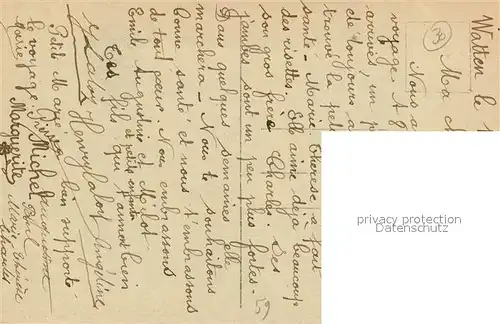 Watten le
Ma c
Nous a
voyage. A 8
arrivés, un p
de toujours a
trouvé la pet
santé - Marie Thérèse a fait
des risettes. Elle aime déjà beaucoup
son gros frère Charles. Ses
jambes sont un peu plus fortes.
Dans quelques semaines elle
marchera - Nous te souhaitons
bonne santé et nous t'embrassons
de tout cœur. Nous embrassons
Emile, Augustine et Milot
Tes fils et petits enfants
qui t'aiment bien
Henry Angeline
Petite Marie a bien supporté
le voyage.
Marie Michel
Marguerite Paul
Marie Thérèse
Charles
privacy protection
Datenschutz